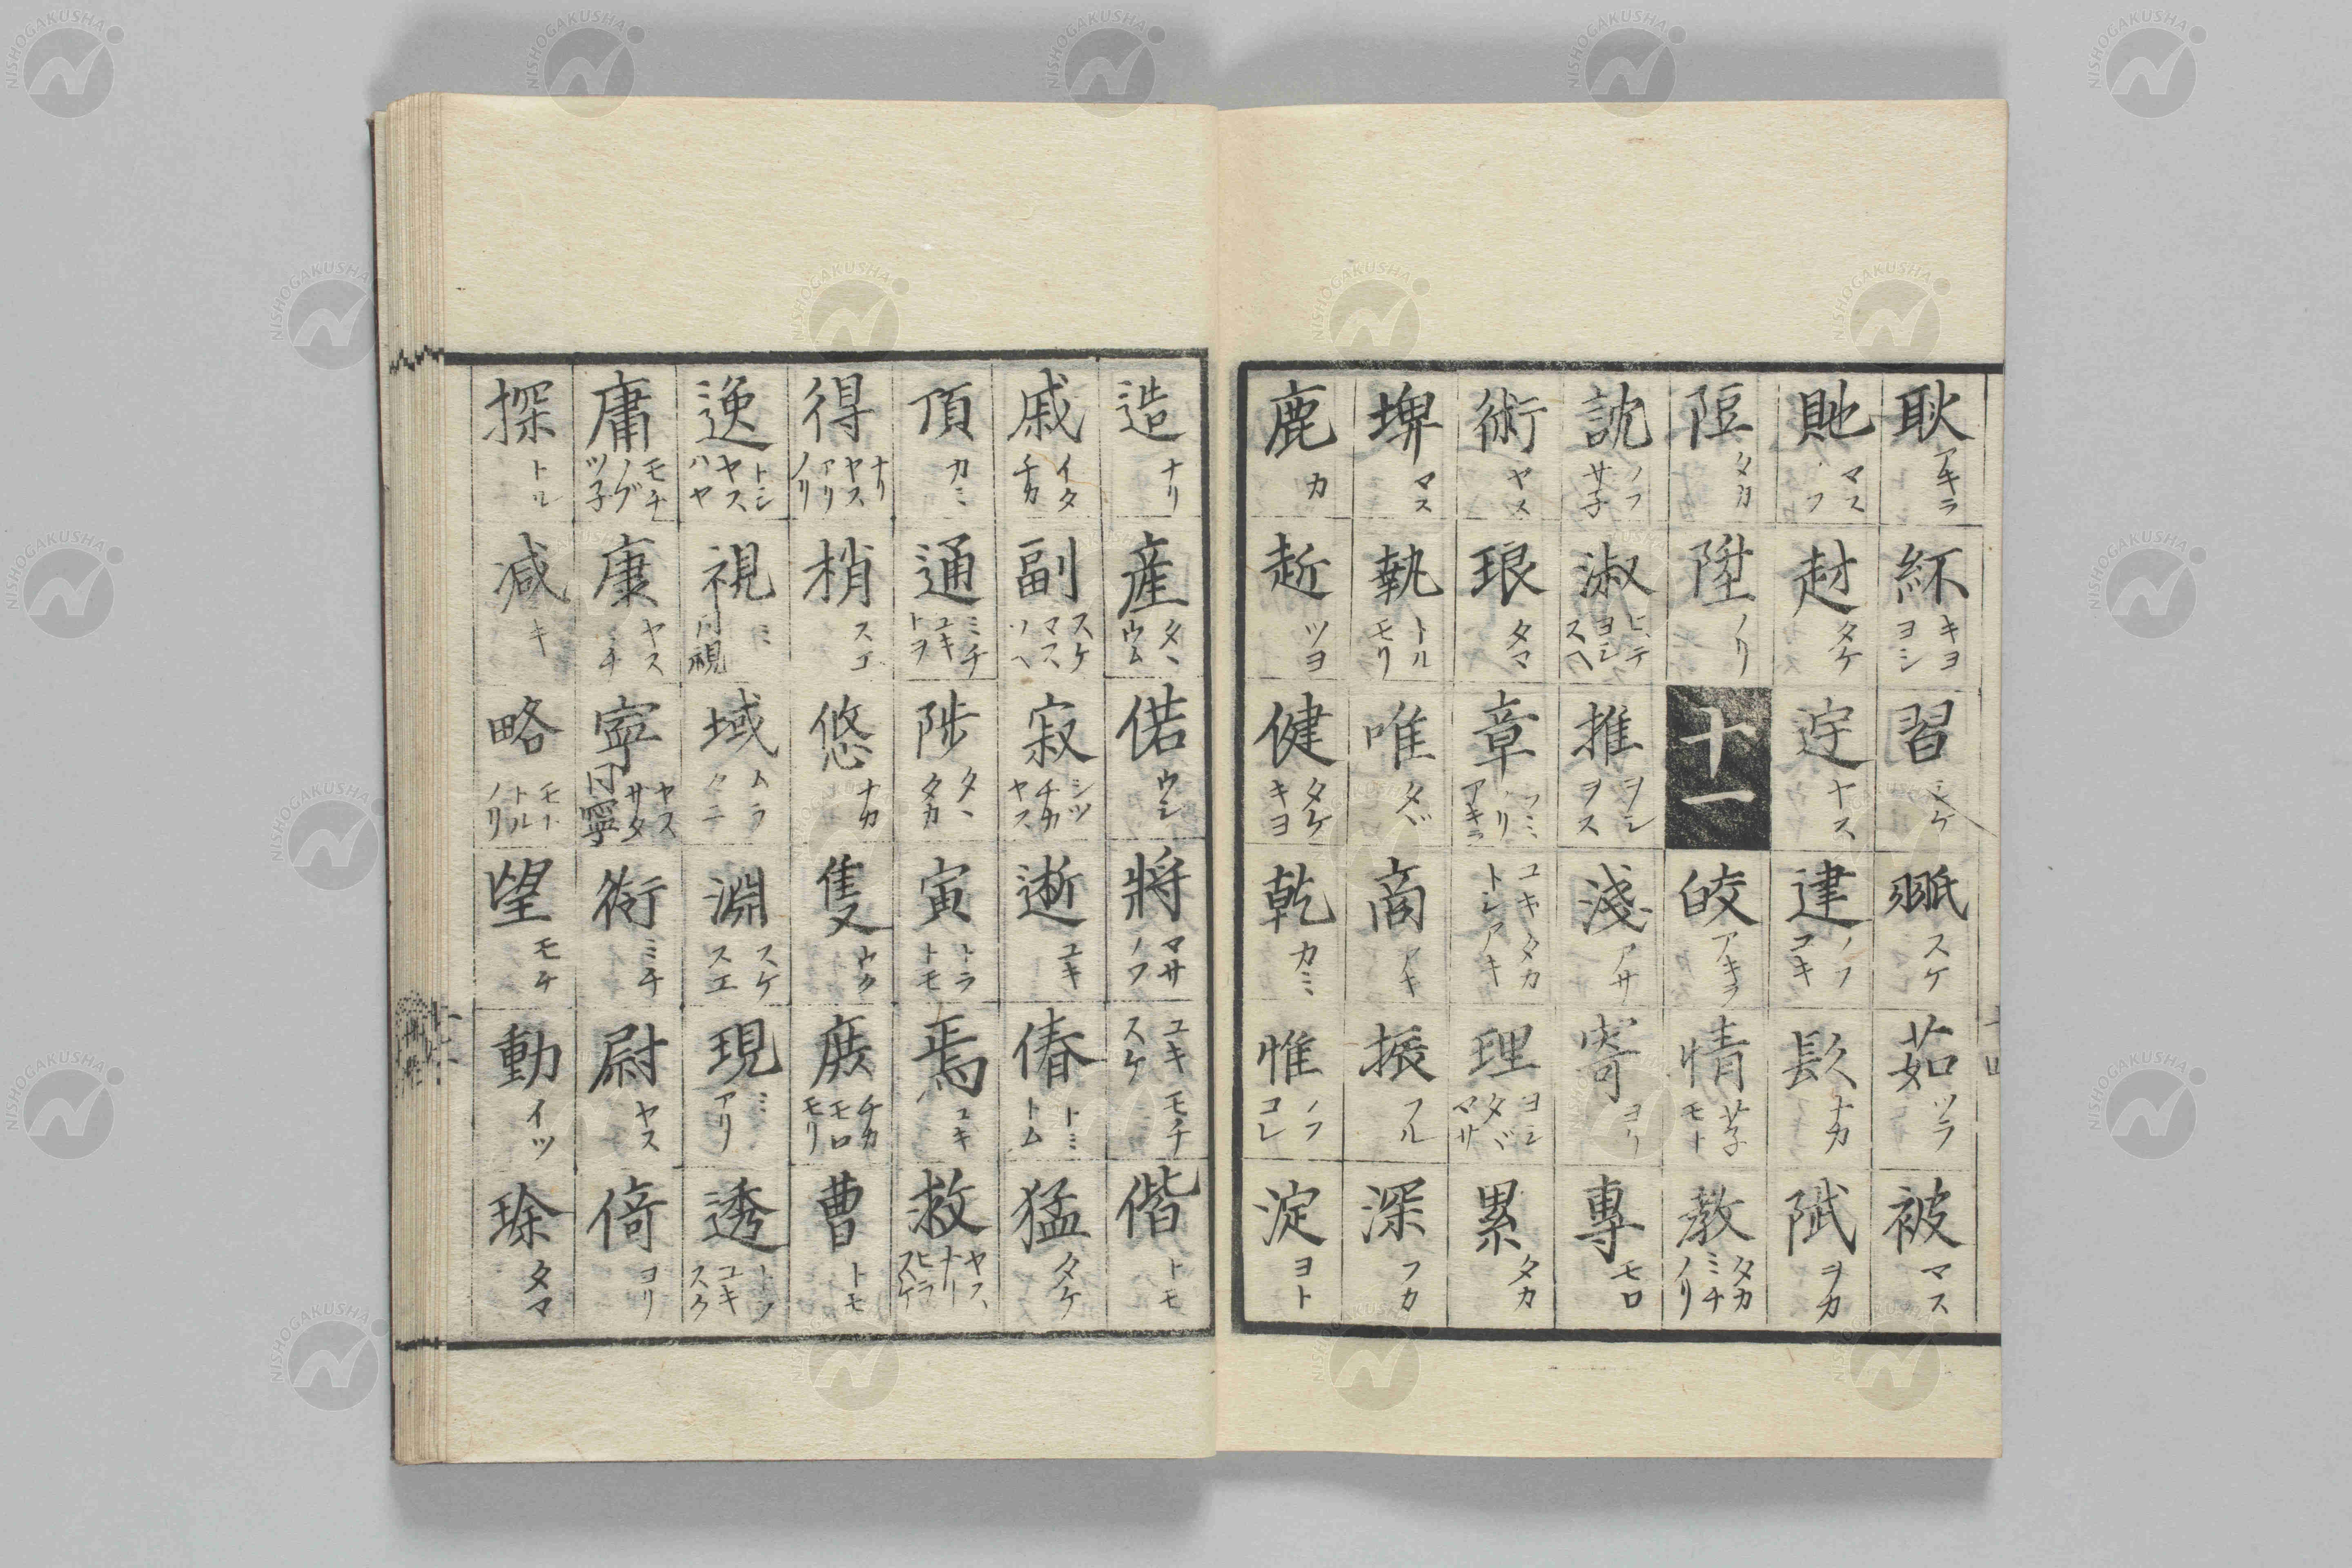 耿 アキラ 紑 キヨ ヨシ 習 シケ 𦐊 スケ 茹 ツラ 被 マス
貤 マス 赳 タケ 迂 ヤス 建 ノフ コキ 镹 ナカ 陚 ヲカ
陌 タカ 陞 ノリ 十一 皎 アキラ 情 サ子 モト 教 タカ ミチ ノリ
訦 ノフ サ子 淑 ヒテ ヨシ スヘ 推 ヲシ ヲス 淺 アサ 寄 ヨリ 專 モロ
術 ヤス 琅 タマ 章 フミ ノリ アキラ ユキ タカ トシ アキ 理 ヨシ タヾ マサ 累 タカ
埤 マス 執 トル モリ 唯 タヾ 商 アキ 振 フル 深 フカ
鹿 カ 赾 ツヨ 健 タケ キヨ 乾 カミ 惟 ノフ コレ 淀 ヨト
造 ナリ 產 タヽ ウム 偌 ウシ 將 マサ ノフ ユキ モチ スケ 偕 トモ
戚 イタ チカ 副 スケ マス ソヘ 寂 シツ チカ ヤス 逝 ユキ 偆 トミ トム 猛 タケ
頂 カミ 通 ミチ ユキ トヲ 陟 タヽ タカ 寅 トラ トモ 焉 ユキ 救 ヤス ナリ ヒラ スケ
得 ナリ ヤス アリ ノリ 梢 スエ 悠 ナカ 隻 ウク 庻 チカ モロ モリ 曹 トモ
逸 トシ ヤス ハヤ 視 ミ 同視 域 ムラ クニ 淵 スケ スエ 現 ミ アリ 透 トシ ユキ スク
庸 モチ ノブ ツ子 康 ヤス ミチ 寍 ヤス サタ 同寧 衑 ミチ 尉 ヤス 倚 ヨリ
探 トル 減 キ 略 モト トル ノリ 望 モチ 動 イツ 琜 タマ